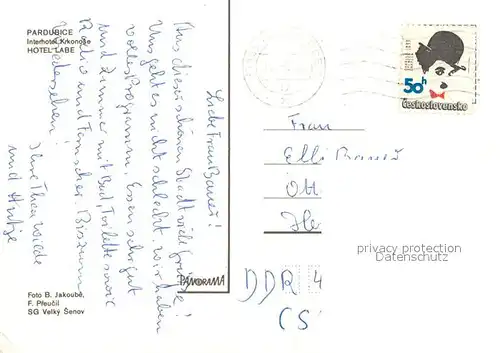 PARDUBICE
Interhotel Krkonoše
HOTEL LABE
Liebe Frau Bauer!
Aus dieser schönen Stadt viele Grüsse!
Uns geht es nicht schlecht, wir haben
volles Programm. Essen sehr gut
und Zimmer mit Bad, Toilette sowie
Radio und Fernseher. Bis zum
Wiedersehen!
Ihre Thea Wilde
und Antje
Foto B. Jakoubě,
F. Přeučil
SG Velký Šenov
PANORAMA
50h
Československo
Frau
Elli Bauer
Ott
privacy protection
Datenschutz
DDR 4
(S